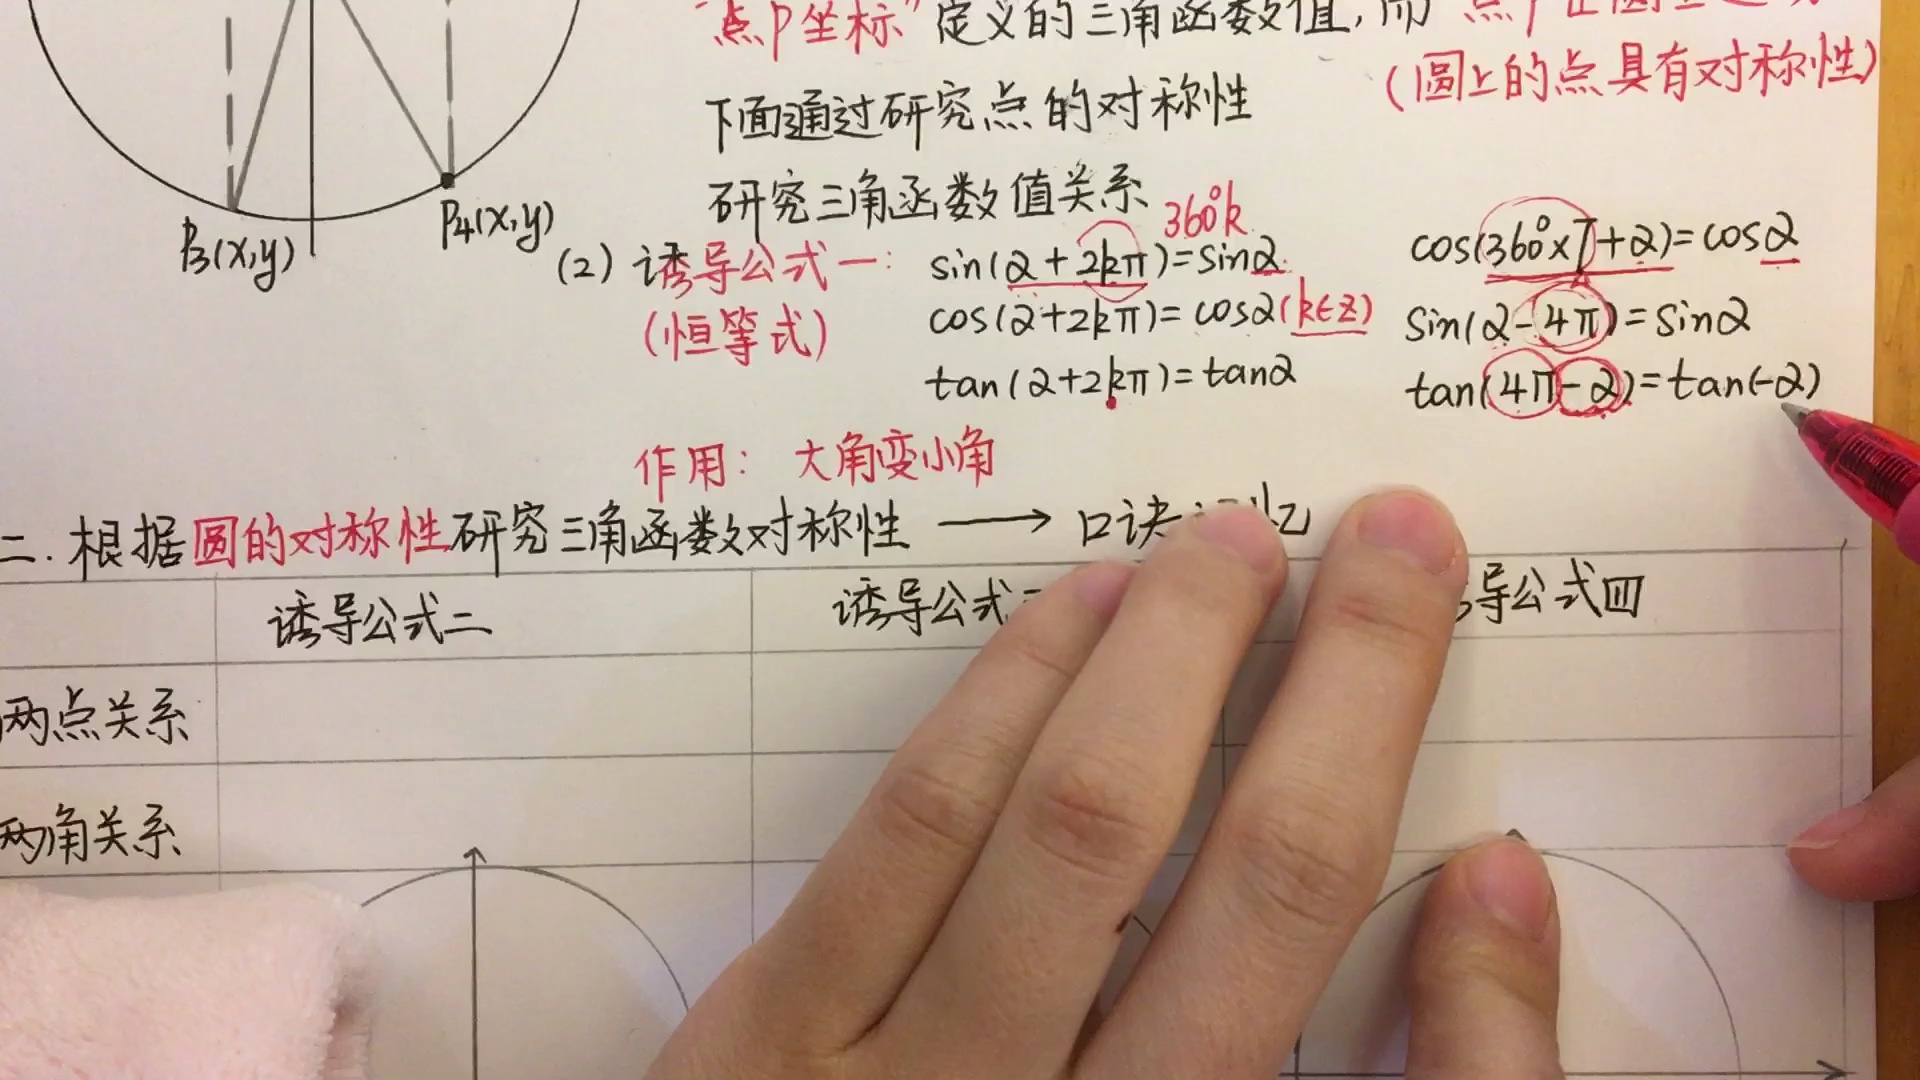 “点P坐标”定义的三角函数值,而
(圆上的点具有对称性)
下面通过研究点的对称性
研究三角函数值关系
P₃(x,y)
P₄(x,y)
360°k
(2) 诱导公式一: sin(α+2kπ)=sinα
(恒等式) cos(α+2kπ)=cosα(k∈Z)
tan(α+2kπ)=tanα
cos(360°×7+α)=cosα
sin(α-4π)=sinα
tan(4π-α)=tan(-α)
作用: 大角变小角
二.根据圆的对称性研究三角函数对称性 → 口诀忆
诱导公式二 诱导公式 导公式四
两点关系
两角关系